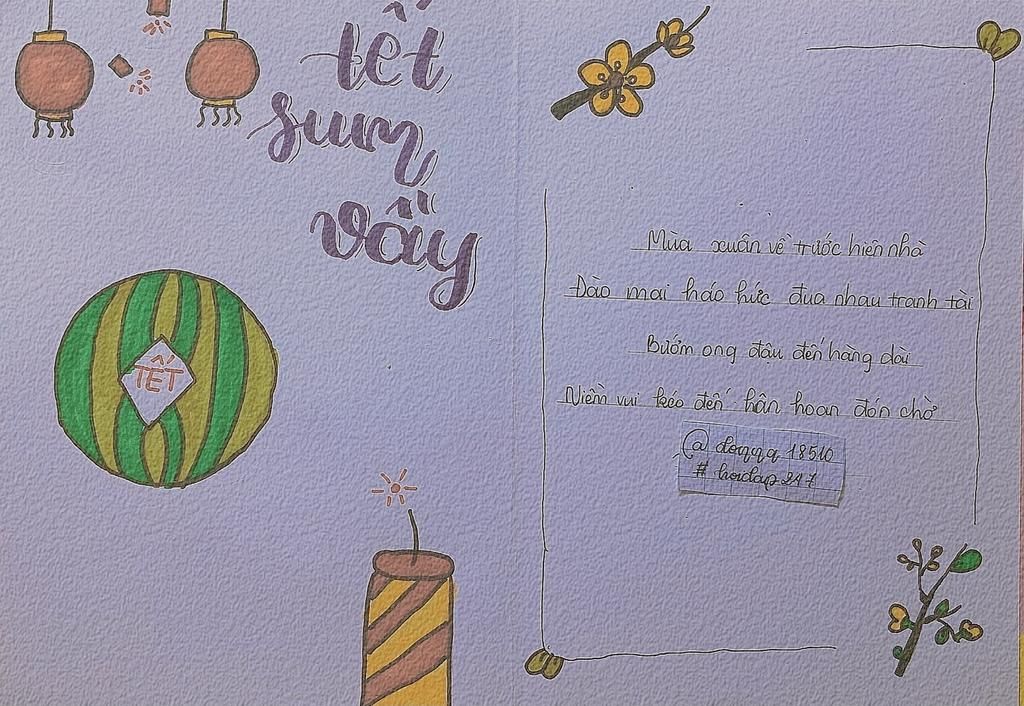 tết
sum
vầy
TẾT
Mùa xuân về trước hiên nhà
Đào mai háo hức đua nhau tranh tài
Bướm ong đậu đến hàng dài
Niềm vui kéo đến hân hoan đón chờ
@ donqq 18510
# hoidap 247